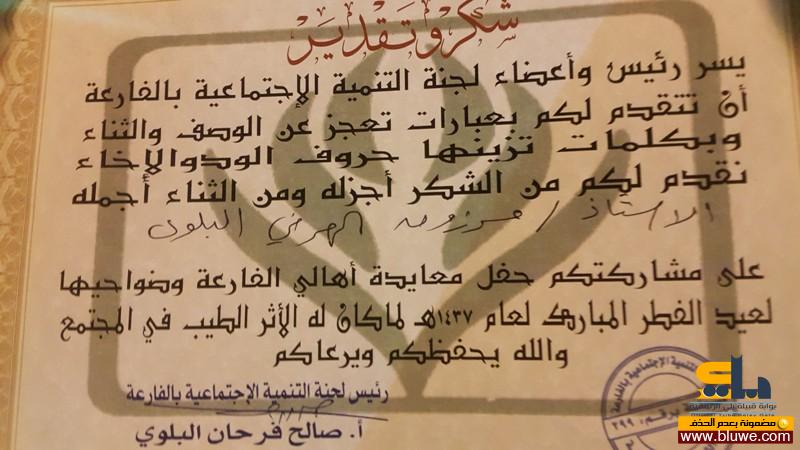 شكر وتقدير
يسر رئيس وأعضاء لجنة التنمية الإجتماعية بالفارعة
أن تتقدم لكم بعبارات تعجز عن الوصف والثناء
وبكلمات تزينها حروف الودوالاخاء
نقدم لكم من الشكر أجزله ومن الثناء أجمله
الاستاذ / مرزوق البلوي
على مشاركتكم حفل معايدة أهالي الفارعة وضواحيها
لعيد الفطر المبارك لعام ١٤٣٧هـ لماكان له الأثر الطيب في المجتمع
والله يحفظكم ويرعاكم
رئيس لجنة التنمية الإجتماعية بالفارعة
أ. صالح فرحان البلوي
التنمية الإجتماعية بالفارعة
برقم: ٢٩٩
بوابة قبيلة بلي الرسمية
مضمونة بعدم الحذف
www.bluwe.com